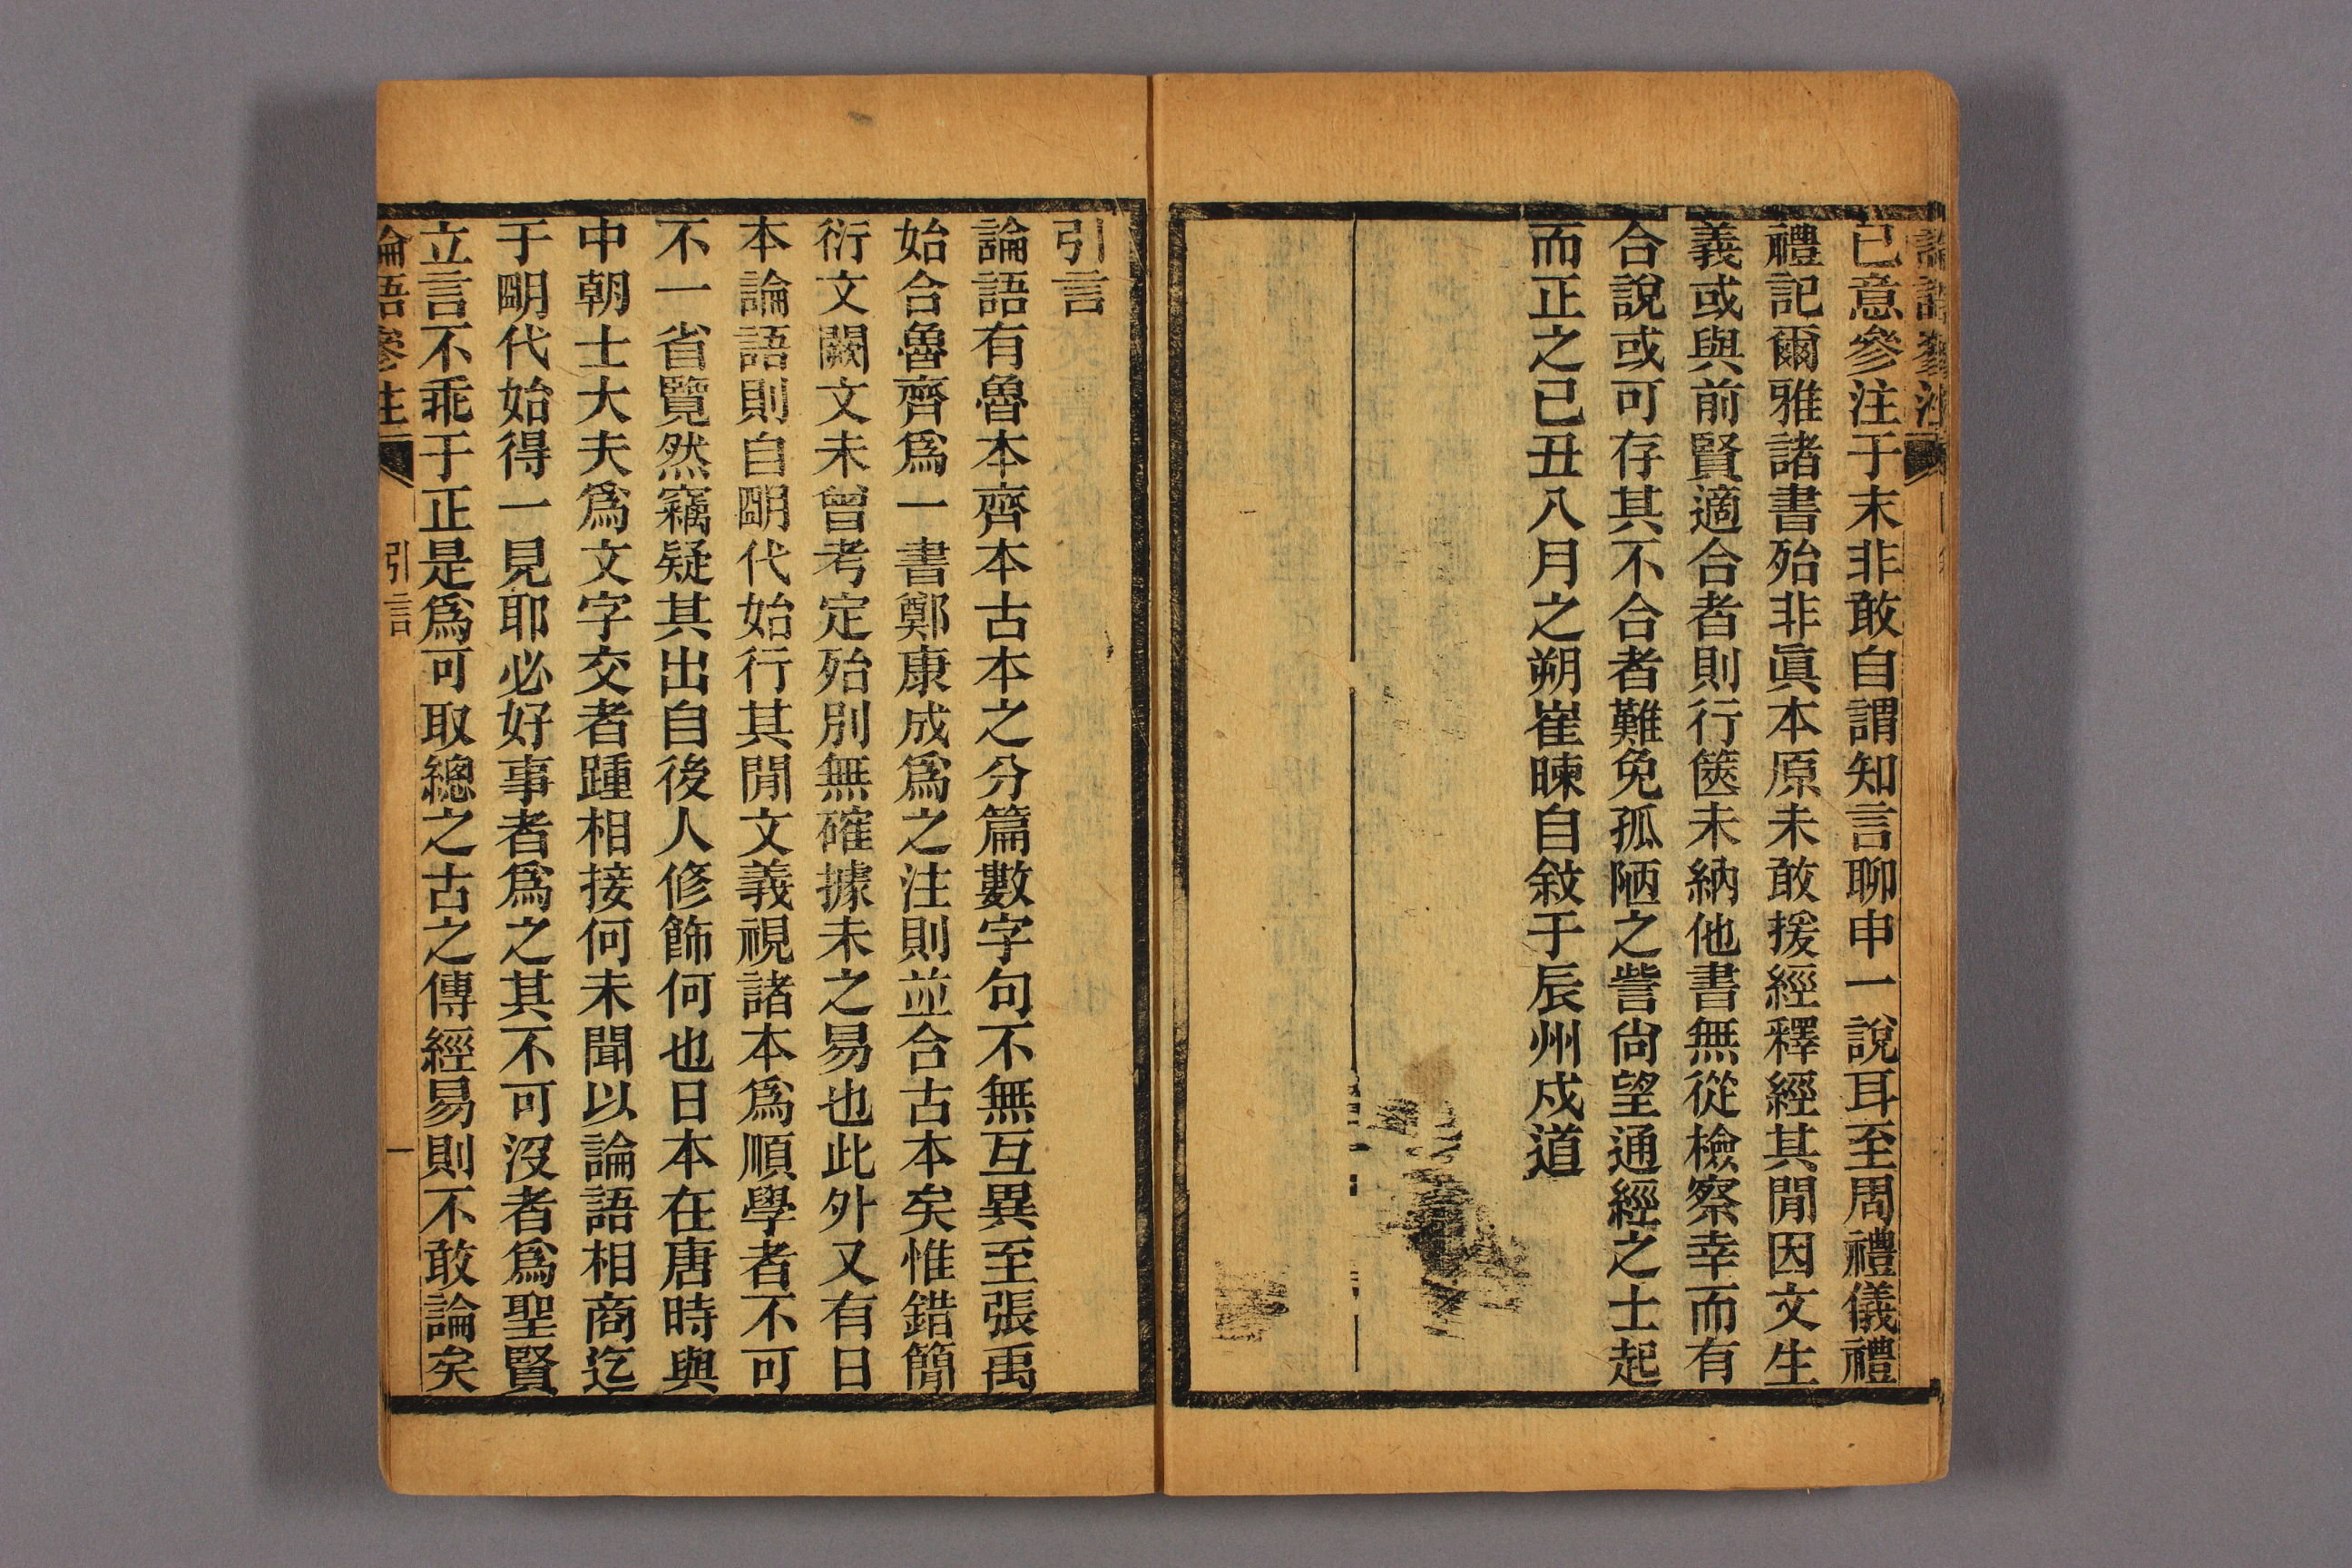 論語參注
已意參注于末非敢自謂知言聊申一說耳至周禮儀禮
禮記爾雅諸書殆非眞本原未敢援經釋經其閒因文生
義或與前賢適合者則行篋未納他書無從檢察幸而有
合說或可存其不合者難免孤陋之訾尙望通經之士起
而正之己丑八月之朔崔暕自敘于辰州戍道
引言
論語有魯本齊本古本之分篇數字句不無互異至張禹
始合魯齊爲一書鄭康成爲之注則並合古本矣惟錯簡
衍文闕文未曾考定殆別無確據未之易也此外又有日
本論語則自朙代始行其閒文義視諸本爲順學者不可
不一省覽然竊疑其出自後人修飾何也日本在唐時與
中朝士大夫爲文字交者踵相接何未聞以論語相商迄
于朙代始得一見耶必好事者爲之其不可沒者爲聖賢
立言不乖于正是爲可取總之古之傳經易則不敢論矣
論語參注 引言 一